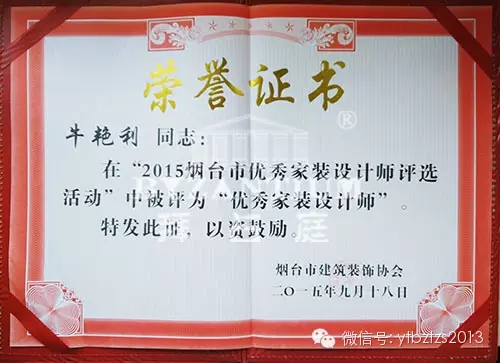 荣誉证书
牛艳利 同志：
在“2015烟台市优秀家装设计师评选
活动”中被评为“优秀家装设计师”。
特发此证，以资鼓励。
烟台市建筑装饰协会
二〇一五年九月十八日
微信号: ytbzlzs2013